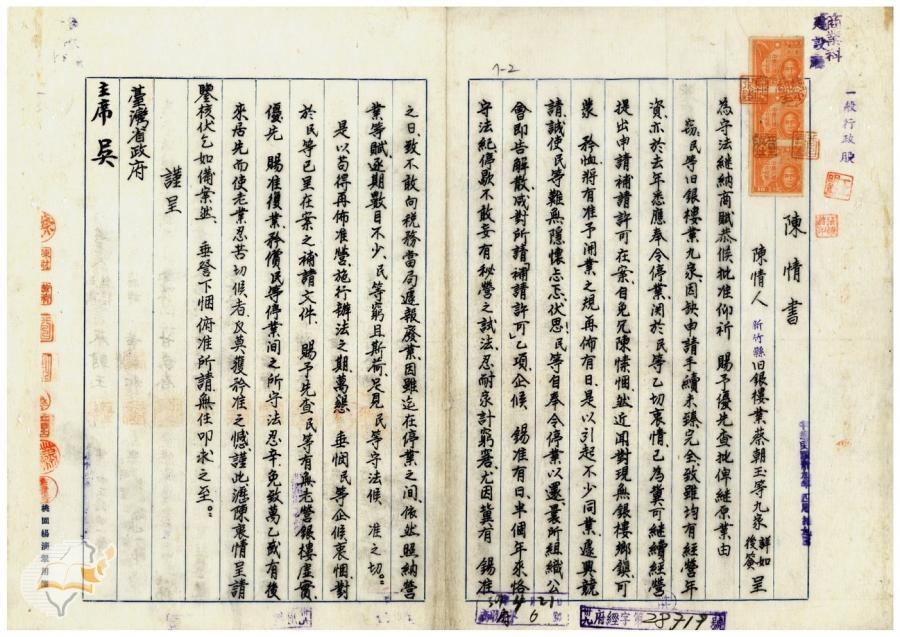 陳情書
陳情人 新竹縣旧銀樓業蔡朝玉等九家 詳如後簽 呈
為守法継納商賦恭候批准仰祈 賜予優先查批俾継原業由
窃民等旧銀樓業九家因缺申請手續未臻完全致雖均有経營年
資亦於去年悉應奉令停業関於民等乙切衷情已為冀可継續経營
提出申請補請許可在案自免冗陳愫悃然近聞對現無銀樓鄉鎮可
蒙 矜恤將有准予開業之規再佈有日是以引起不少同業遽興競
請誠使民等難無隱懷忐忑伏思民等自奉令停業以還曩所組織公
會即告解散咸對所請「補請許可」乙項企候 錫准有日半個年來恪
守法紀停歇不敢妄有秘營之試法忍耐家計窮窘尤因冀有 錫准
之日致不敢向稅務當局遞報廢業因雖迄在停業之間依然照納營
業等賦逐期數目不少民等窮且斯荷足見民等守法候 准之切
是以苟得再佈准營施行辦法之期萬懇 垂憫民等企候衷悃對
於民等已呈在案之補請文件 賜予先查民等有無老營銀樓虛實
優先 賜准復業矜償民等停業间之所守法忍辛免致萬乙或有後
來居先而使老業忍苦切候者反莫獲矜准之憾謹此瀝陳衷情呈請
鑒核伏乞如備案然 垂詧下悃俯准所請無任叩求之至
謹呈
臺灣省政府
主席 吳
一般行政股
商業科
建設廳
1-2
39 4 21
府 6
府經字第28719號
桃園楊演榮用箋